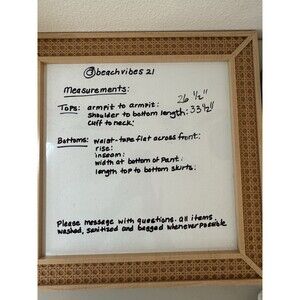 @beachvibes21
Measurements:
Tops: armpit to armpit: 26 1/2"
shoulder to bottom length: 33 1/2"
cuff to neck:
Bottoms: waist-tape flat across front:
rise:
inseam:
width at bottom of pant:
length top to bottom skirts:
Please message with questions. all items
washed, sanitized and bagged whenever possible